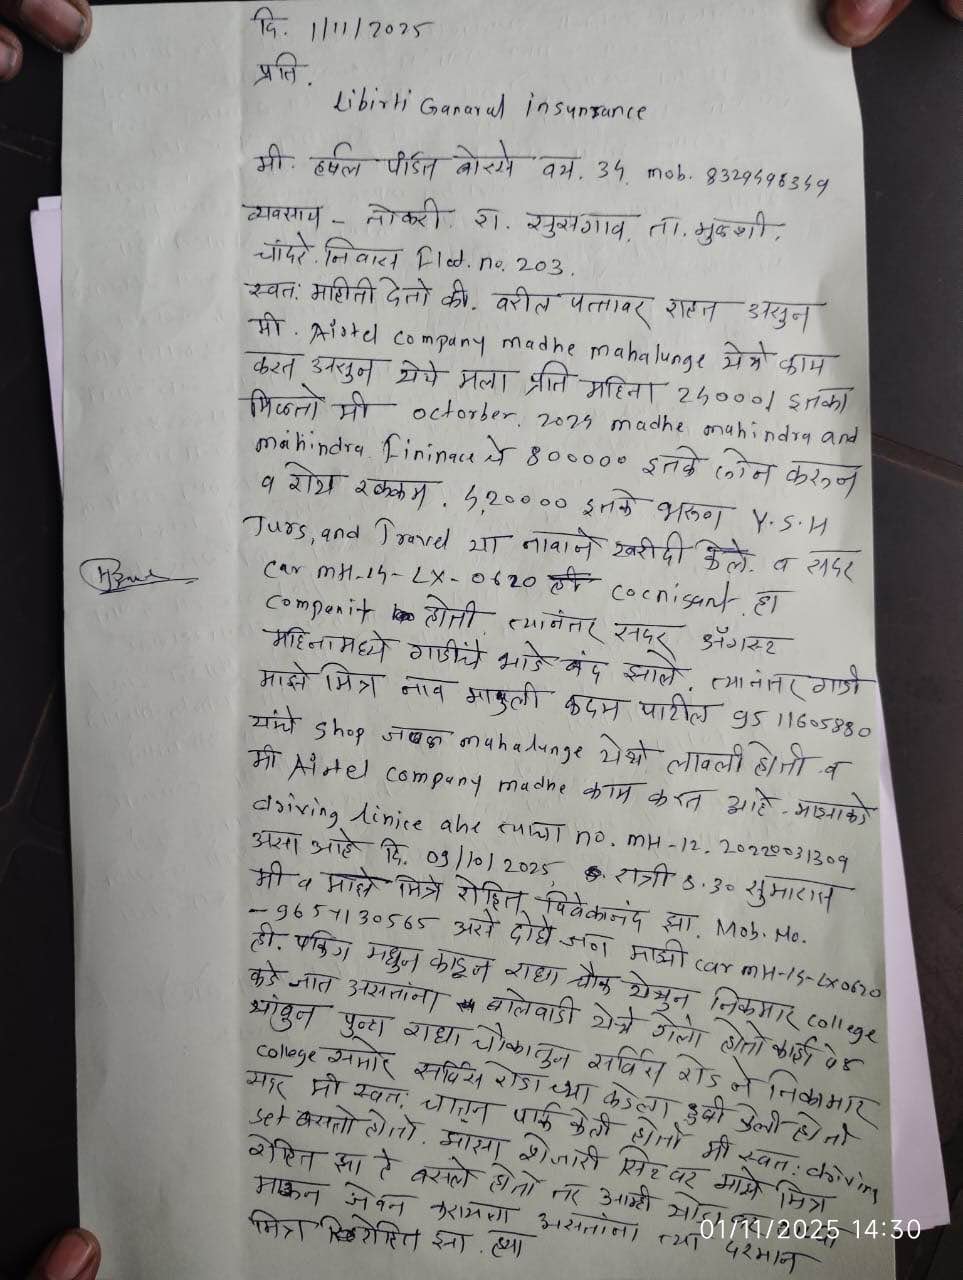 दि. 1/11/2025
प्रति.
Libirti Ganaral insurance
मी. हर्षल पंडित बोरसे वय. 34. mob. 8329498349
व्यवसाय - नोकरी. रा. सुसगाव. ता. मुळशी.
चांदरे. निवास flat. no. 203.
स्वत: माहीती देतो की. वरील पत्तावर राहत असुन
मी. Airtel company madhe mahalunge येथे काम
करत असुन येथे मला प्रति महिना 25000/ इतका
मिळतो मी octorber. 2024 madhe mahindra and
mahindra fininace चे 800000 इतके लोन करून
व रोख रक्कम. 5,20000 इतके भरून Y.S.H
Turs, and Travel या नावाने खरीदी केले. व सदर
car MH-14-LX-0620 ही cocnisant. हा
companit होती. त्यानंतर सदर ऑगस्ट
महिनामध्ये गाडीचे भाडे बंद झाले. त्यानंतर गाडी
माझे मित्र नाव माऊली कदम पाटील 9511605880
यांचे shop जवळ mahalunge येथे लावली होती व
मी Airtel company madhe काम करत आहे - माझाकडे
driving linice ahe त्याचा no. MH-12. 20220031309
असा आहे दि. 09/10/2025, रात्री 8.30 सुमारास
मी व माझे मित्र रोहित विवेकानंद झा. Mob. No.
- 9657130565 असे दोघे जण माझी car MH-14-LX0620
ही. पार्किंग मधुन काढून राधा चौक येथुन निकमार college
कडे जात असतांना बालेवाडी येथे गेलो होतो काही वेळ
थांबुन पुन्हा राधा चौकातुन सर्विस रोड ने निकमार
college समोर सर्विस रोडा च्या कडेला उभी केली होती
सदर मी स्वत: चालून पार्क केली होती मी स्वत: driving
set बसलो होतो. माझा शेजारी सिटवर माझे मित्र
रोहित झा हे बसले होते तर आम्ही
जेवन करायला असतांना त्या दरम्यान
मित्र रोहित झा. ह्या
01/11/2025 14:30